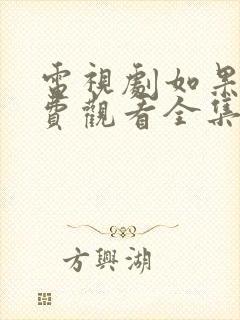 電視劇如果
費觀看全集
方興湖